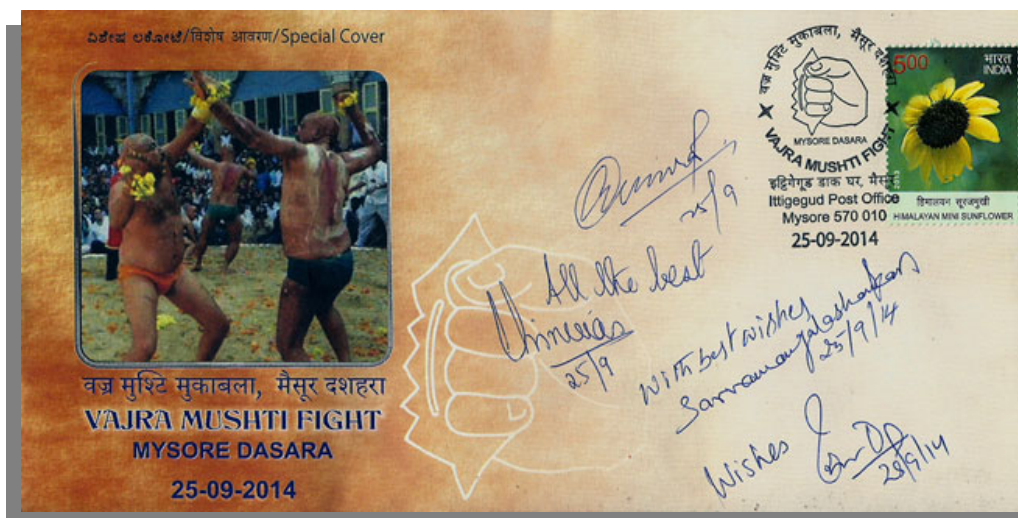 ವಿಶೇಷ ಲಕೋಟೆ/विशेष आवरण/Special Cover
वज्र मुश्टि मुकाबला, मैसूर दशहरा
VAJRA MUSHTI FIGHT
MYSORE DASARA
25-09-2014
वज्र मुश्टि मुकाबला, मैसूर दशहरा
MYSORE DASARA
VAJRA MUSHTI FIGHT
इट्टिगेगूड डाक घर, मैसूर
Ittigegud Post Office
Mysore 570 010
25-09-2014
5.00
भारत
INDIA
2013
हिमालयन सूरजमुखी
HIMALAYAN MINI SUNFLOWER
25/9
All the best
25/9
With best wishes
Sarvamangalashankar
25/9/14
Wishes